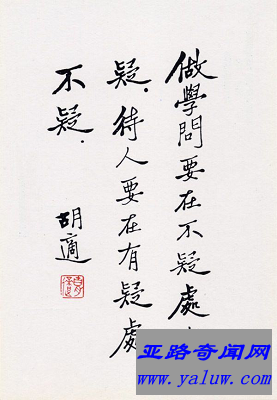 做學問要在不疑處有
疑．待人要在有疑處
不疑．
胡適
亚路奇闻网
www.yaluw.com